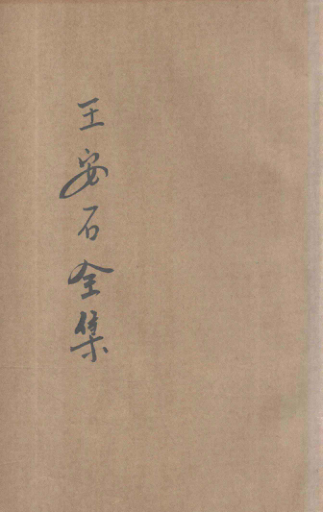 王安石全集